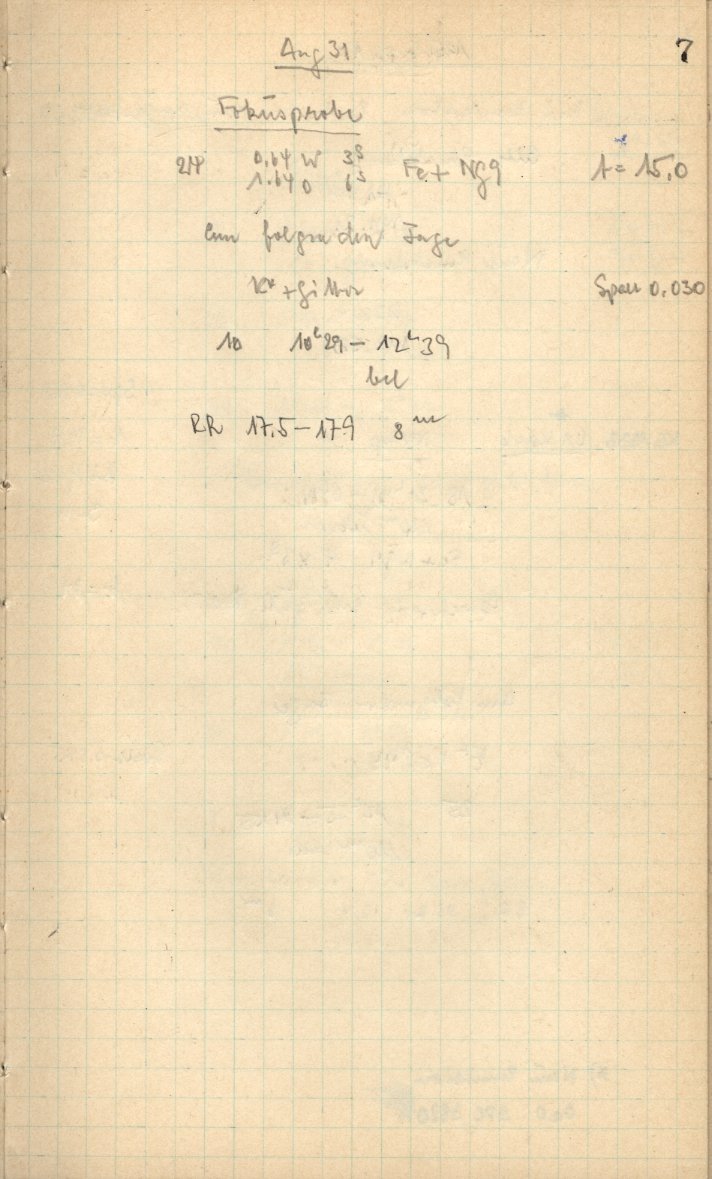 7
Aug 31
Fokusprobe
24 0,64 W 3ˢ Fe + Ng9 t = 15,0
1.64 O 6ˢ
folgenden Tage
K* + Gitter Spalt 0.030
10 10ʰ29 — 12ʰ39
bel
RR 17,5 — 17.9 8ᵐ